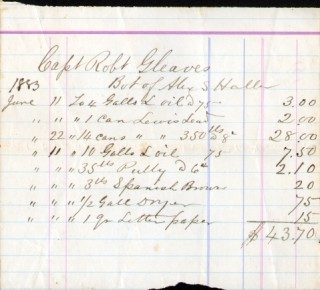 Capt Robt Gleaves
1883 Bot of Alex S Haller
June 11 To 4 Galls L oil @ 75 3.00
" " " 1 Can Lewis Lead 2.00
" 22 " 14 cans " " 350 lbs @ 8c 28.00
" 11 " 10 Galls L oil 75 7.50
" " " 35 lbs Putty @ 6c 2.10
" " " 3 lbs Spanish Brown 20
" " " 1/2 Gall Dryer 75
" " " 1 qr Letter paper 15
$ 43.70